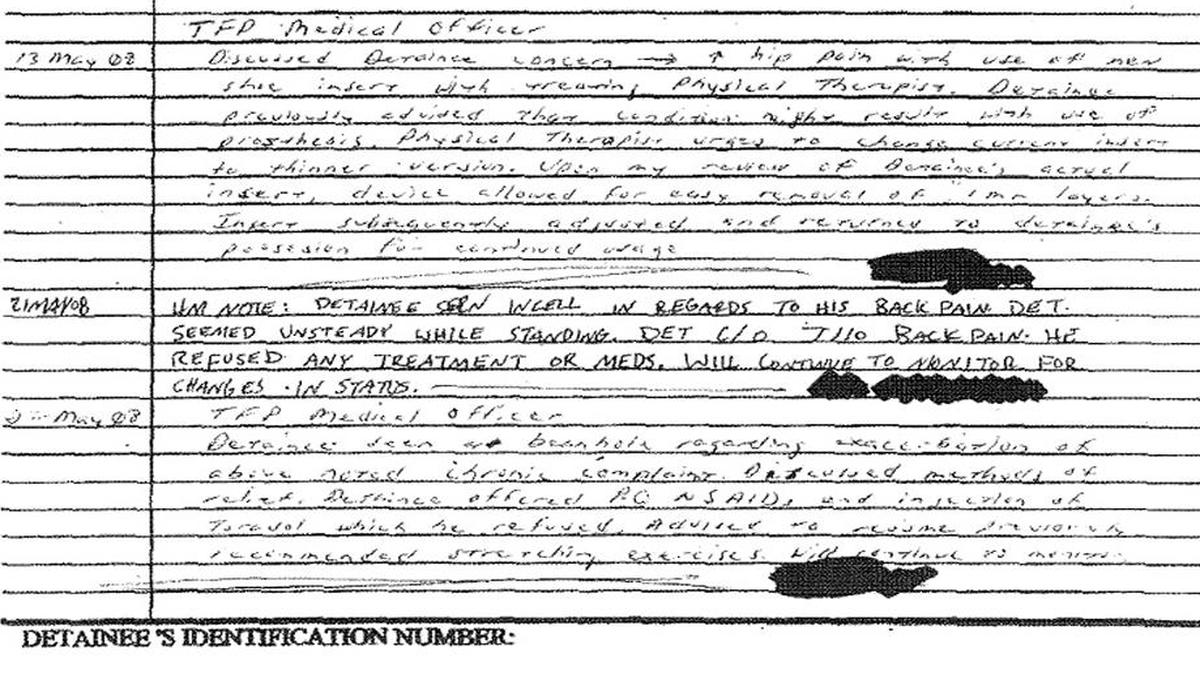 TFP Medical Officer
13 May 08 Discussed Detainee concern → ↑ hip pain with use of new
shoe insert with treating Physical Therapist. Detainee
previously advised that condition might result with use of
prosthesis. Physical Therapist urges to change current insert
to thinner version. Upon my review of Detainee's actual
insert, device allowed for easy removal of 1mm layers.
Insert subsequently adjusted and returned to detainee's
possesion for continued usage
21MAY08 HM NOTE: DETAINEE SEEN INCELL IN REGARDS TO HIS BACK PAIN. DET.
SEEMED UNSTEADY WHILE STANDING. DET C/O BACK PAIN. HE
REFUSED ANY TREATMENT OR MEDS. WILL CONTINUE TO MONITOR FOR
CHANGES IN STATUS.
May 08 TFP Medical Officer
Detainee seen at beanhole regarding exacerbation of
above noted chronic complaint. Discussed methods of
relief. Detainee offered PO NSAIDs and injection of
Toradol which he refused. Advised to resume previously
recommended stretching exercises. Will continue to monitor.
DETAINEE 'S IDENTIFICATION NUMBER: